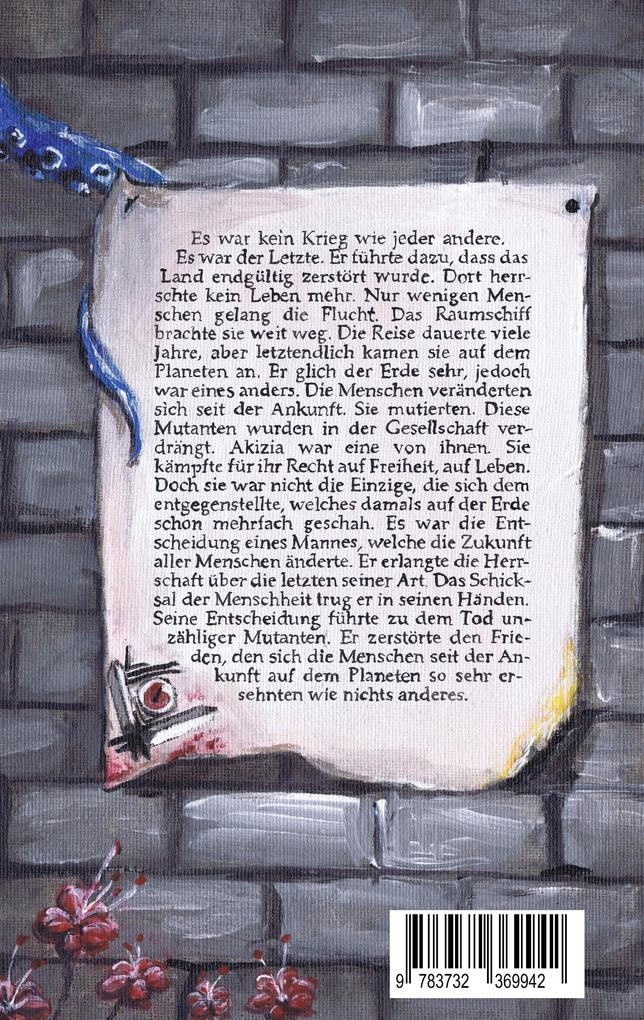 Es war kein Krieg wie jeder andere.
Es war der Letzte. Er führte dazu, dass das
Land endgültig zerstört wurde. Dort herr-
schte kein Leben mehr. Nur wenigen Men-
schen gelang die Flucht. Das Raumschiff
brachte sie weit weg. Die Reise dauerte viele
Jahre, aber letztendlich kamen sie auf dem
Planeten an. Er glich der Erde sehr, jedoch
war eines anders. Die Menschen veränderten
sich seit der Ankunft. Sie mutierten. Diese
Mutanten wurden in der Gesellschaft ver-
drängt. Akizia war eine von ihnen. Sie
kämpfte für ihr Recht auf Freiheit, auf Leben.
Doch sie war nicht die Einzige, die sich dem
entgegenstellte, welches damals auf der Erde
schon mehrfach geschah. Es war die Ent-
scheidung eines Mannes, welche die Zukunft
aller Menschen änderte. Er erlangte die Herr-
schaft über die letzten seiner Art. Das Schick-
sal der Menschheit trug er in seinen Händen.
Seine Entscheidung führte zu dem Tod un-
zähliger Mutanten. Er zerstörte den Frie-
den, den sich die Menschen seit der An-
kunft auf dem Planeten so sehr er-
sehnten wie nichts anderes.
9 783732 369942